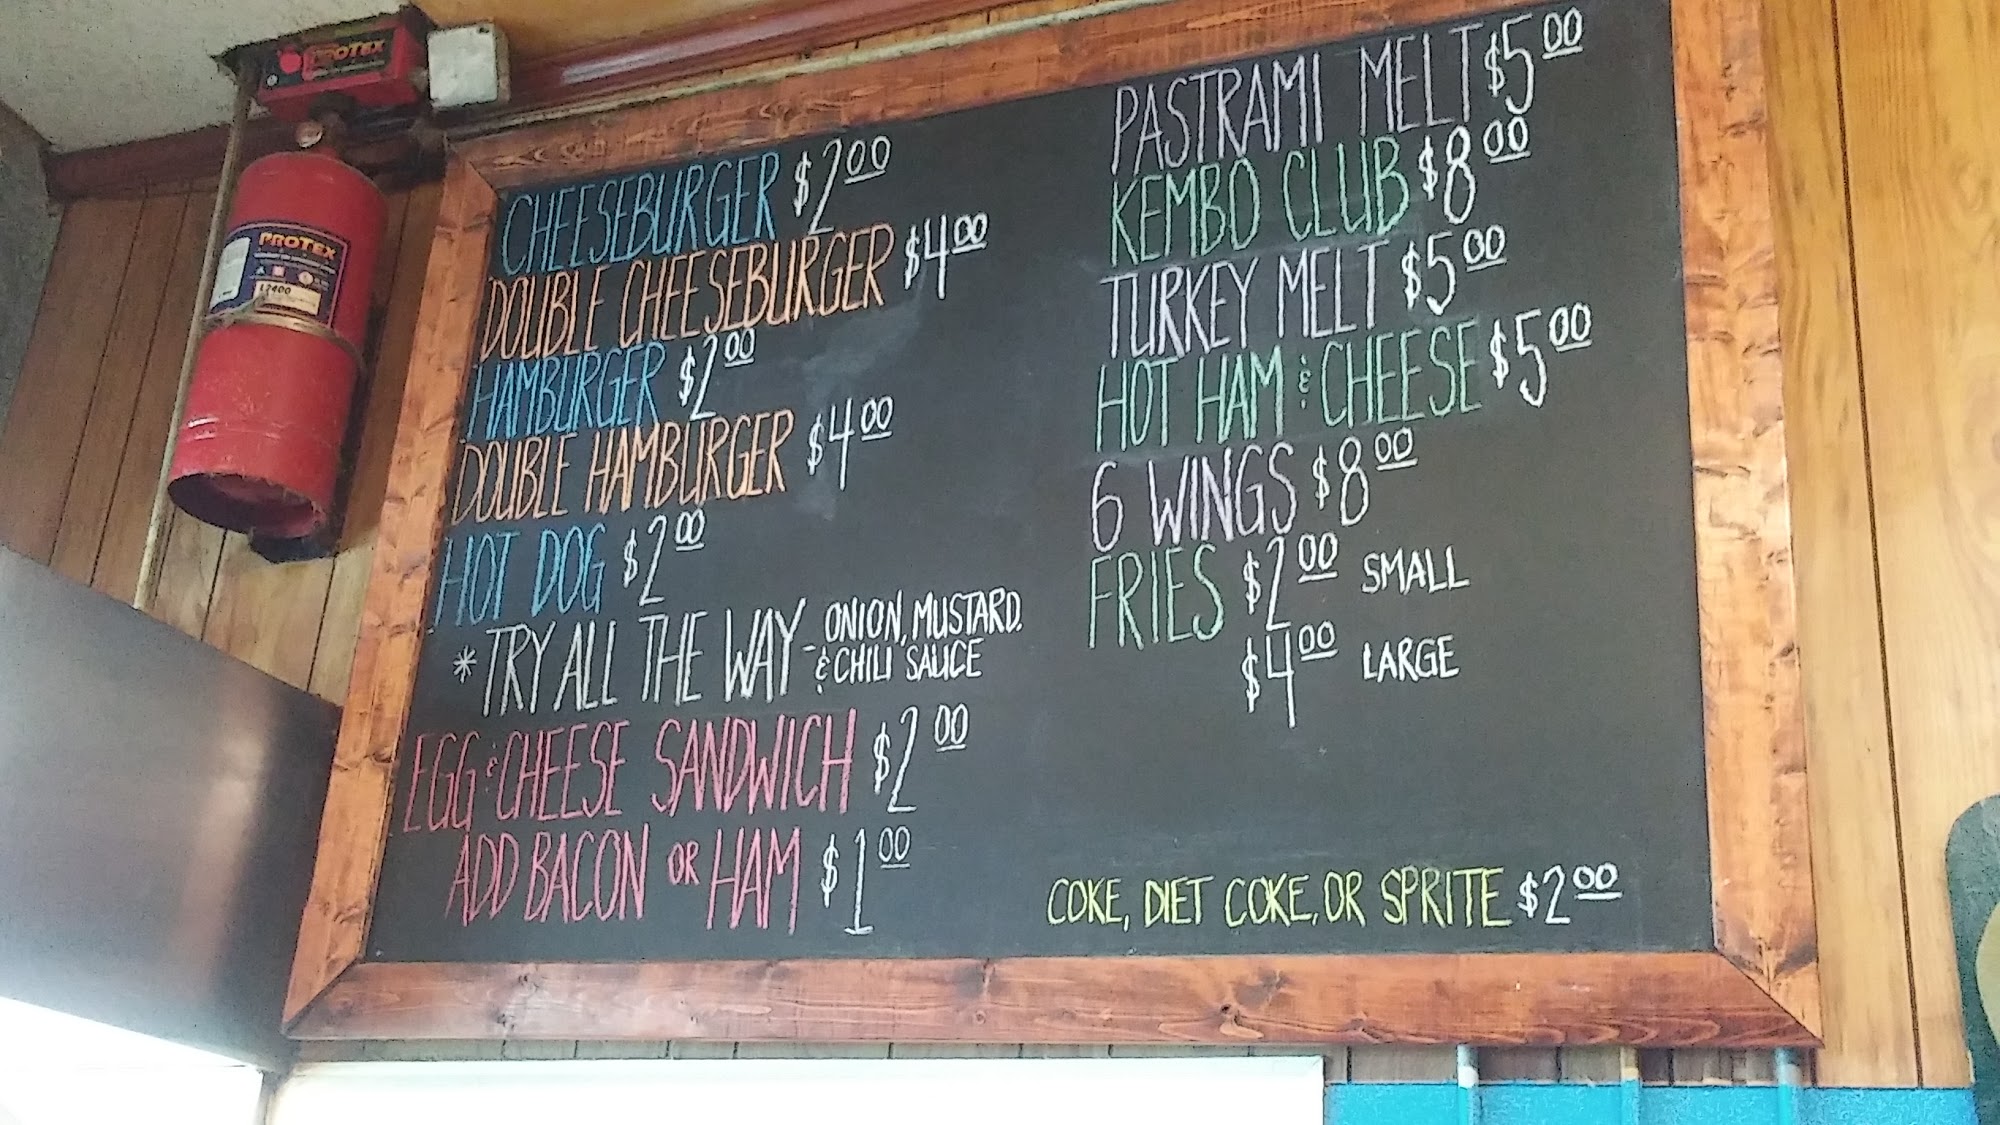 PROTEX
PROTEX
CHEESEBURGER $2.00
DOUBLE CHEESEBURGER $4.00
HAMBURGER $2.00
DOUBLE HAMBURGER $4.00
HOT DOG $2.00
*TRY ALL THE WAY - ONION, MUSTARD,
& CHILI SAUCE
EGG & CHEESE SANDWICH $2.00
ADD BACON OR HAM $1.00
PASTRAMI MELT $5.00
KEMBO CLUB $8.00
TURKEY MELT $5.00
HOT HAM & CHEESE $5.00
6 WINGS $8.00
FRIES $2.00 SMALL
$4.00 LARGE
COKE, DIET COKE, OR SPRITE $2.00